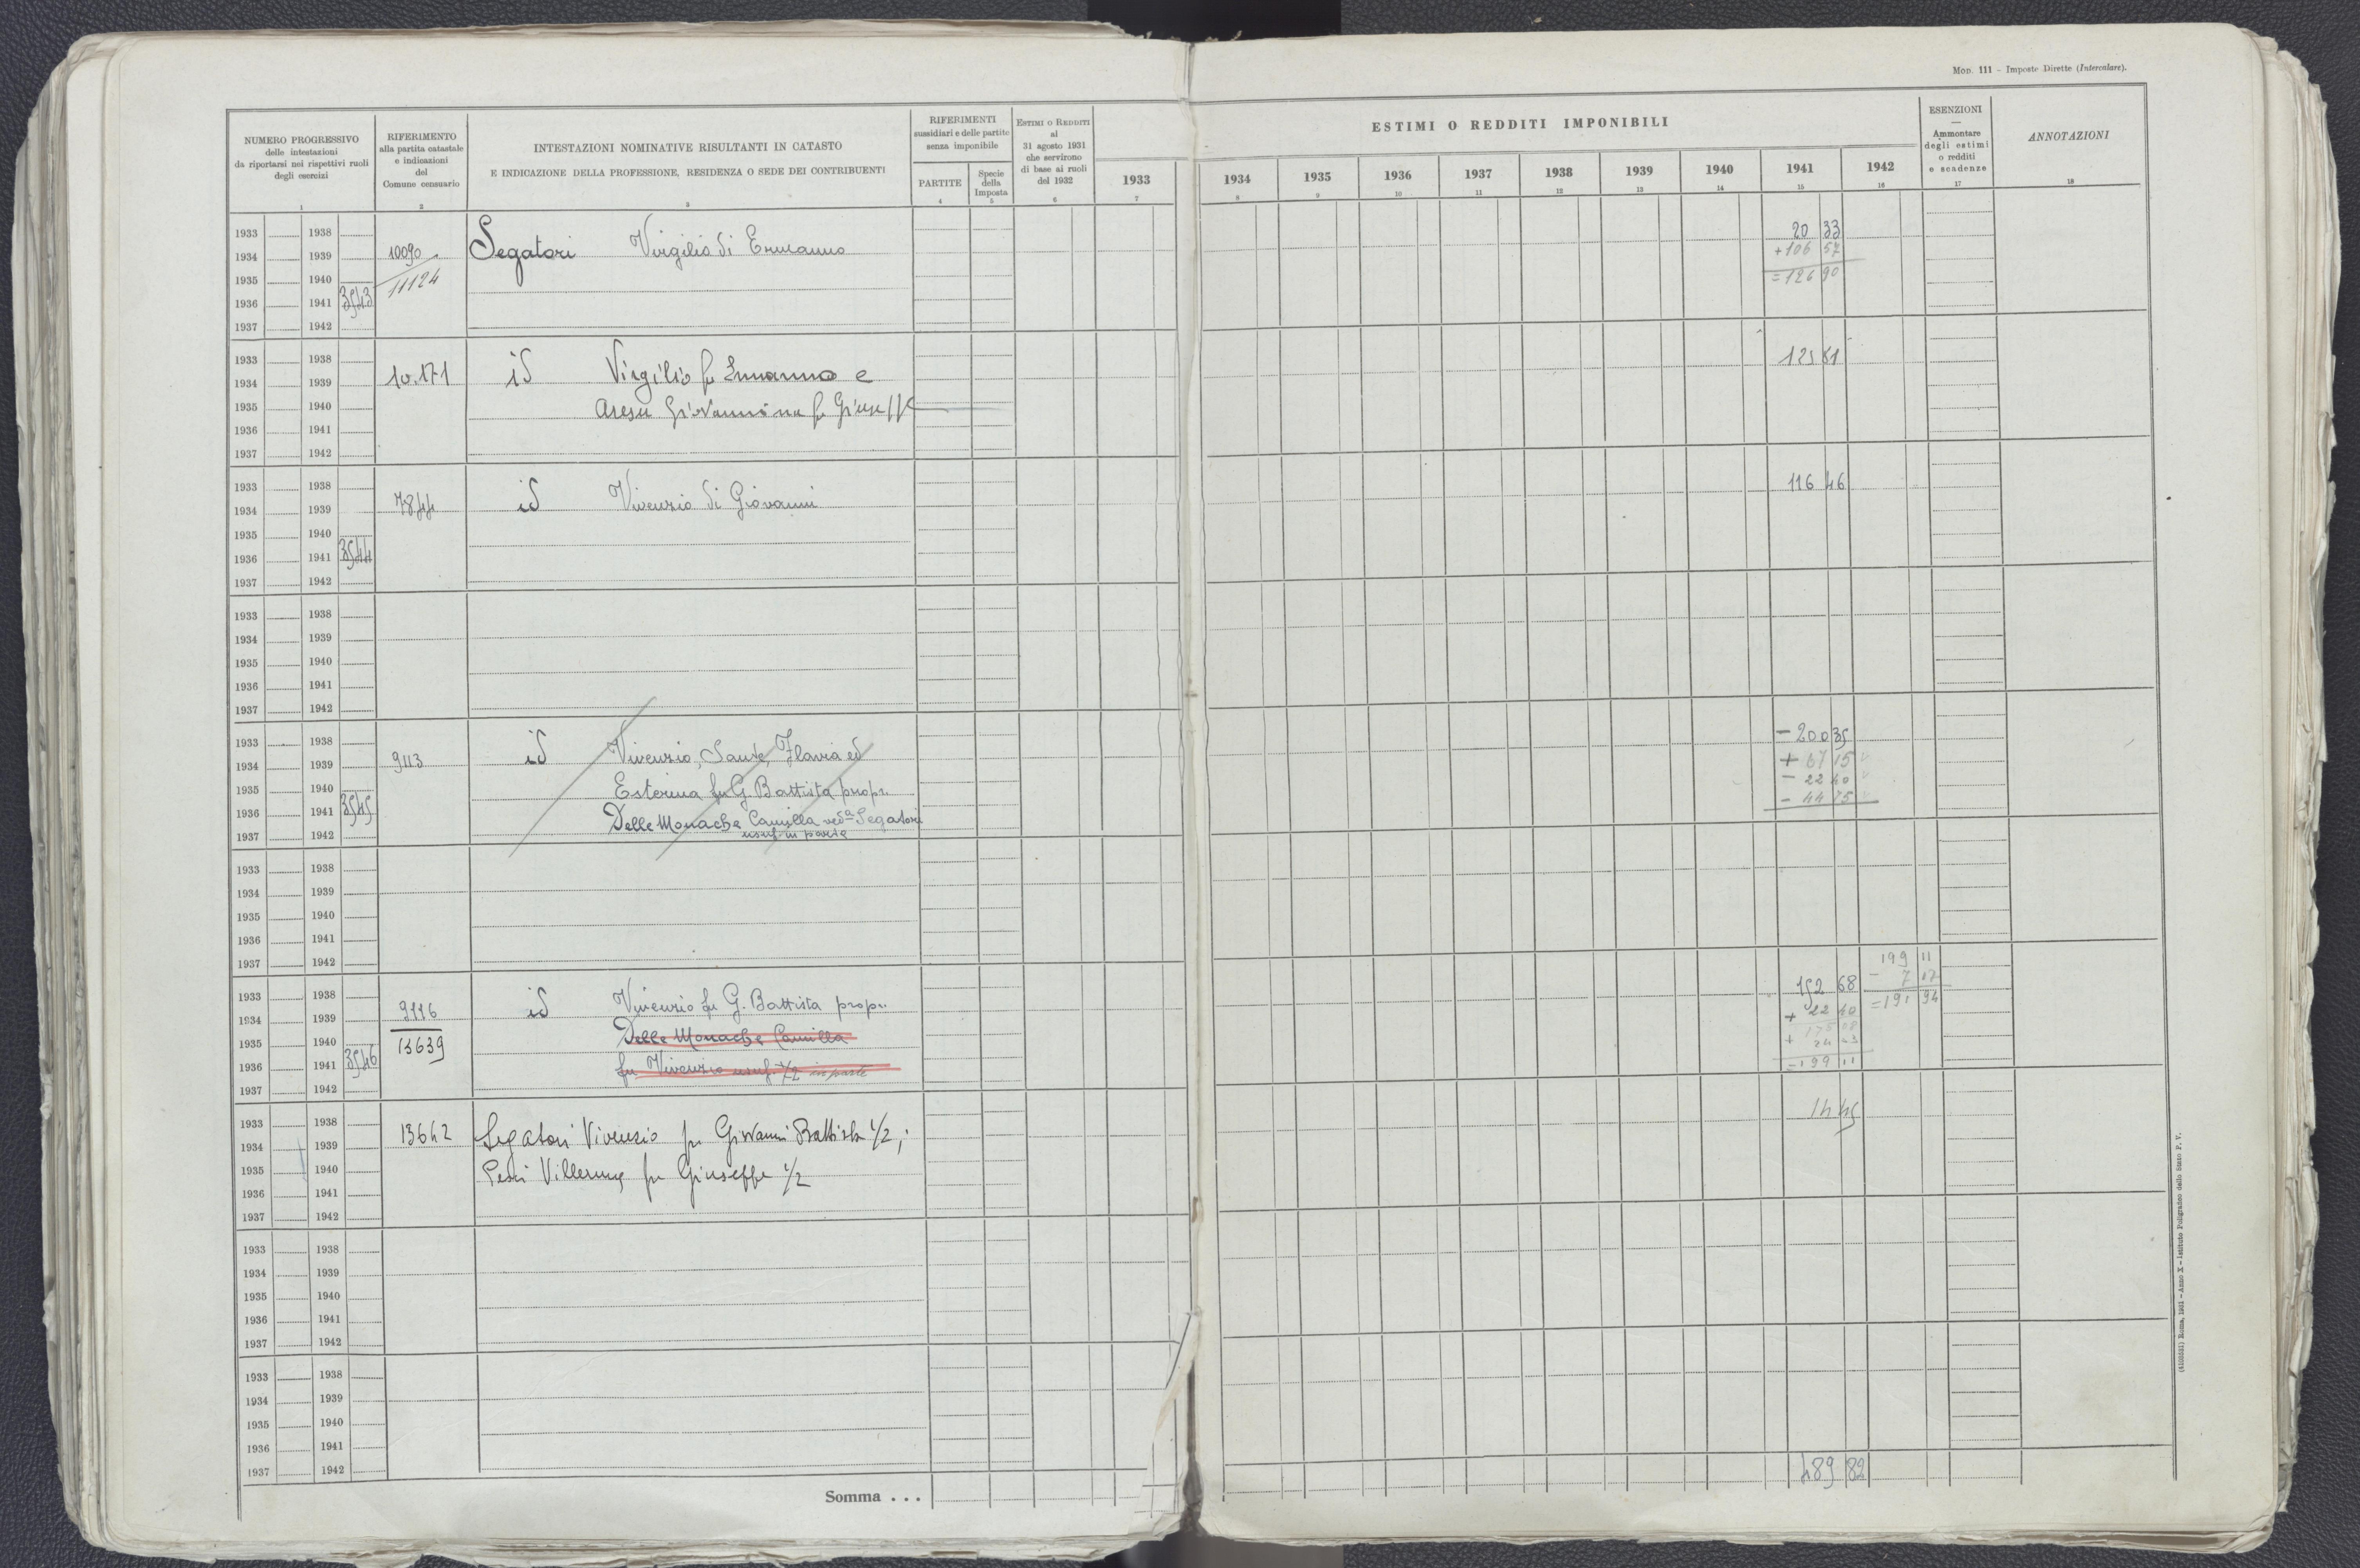 Mod. 111 - Imposte Dirette (Intercalare).
NUMERO PROGRESSIVO
delle intestazioni
da riportarsi nei rispettivi ruoli
degli esercizi
1
RIFERIMENTO
alla partita catastale
e indicazioni
del
Comune censuario
2
INTESTAZIONI NOMINATIVE RISULTANTI IN CATASTO
E INDICAZIONE DELLA PROFESSIONE, RESIDENZA O SEDE DEI CONTRIBUENTI
3
RIFERIMENTI
sussidiari e delle partite
senza imponibile
PARTITE
4
Specie
della
Imposta
5
ESTIMI O REDDITI
al
31 agosto 1931
che servirono
di base ai ruoli
del 1932
6
ESTIMI O REDDITI IMPONIBILI
1933
7
1934
8
1935
9
1936
10
1937
11
1938
12
1939
13
1940
14
1941
15
1942
16
ESENZIONI
—
Ammontare
degli estimi
o redditi
e scadenze
17
ANNOTAZIONI
18
1933 1938
1934 1939
1935 1940
1936 1941 3543
1937 1942
10090
11124
Segatori Virgilio di Ermanno
20 33
+106 57
=126 90
1933 1938
1934 1939
1935 1940
1936 1941
1937 1942
10.171
id Virgilio fu Ermanno e
Giovannina fu Giuseppe
125 81
1933 1938
1934 1939
1935 1940
1936 1941 3544
1937 1942
7844
id Vivenzio di Giovanni
116 46
1933 1938
1934 1939
1935 1940
1936 1941
1937 1942
1933 1938
1934 1939
1935 1940
1936 1941 3545
1937 1942
9113
id Vivenzio, Sante, Flavia ed
Esterina fu G. Battista propr.
Delle Monache Camilla ved.a Segatori
usuf. in parte
- 200 35
+ 67 15
- 22 40
- 44 75
1933 1938
1934 1939
1935 1940
1936 1941
1937 1942
1933 1938
1934 1939
1935 1940
1936 1941 3546
1937 1942
9116
13639
id Vivenzio fu G. Battista propr.
Delle Monache Camilla
fu Vivenzio usuf. 1/2 in parte
152 68
+ 22 40
175 08
+ 24 03
- 199 11
199 11
- 7 17
=191 94
1933 1938
1934 1939
1935 1940
1936 1941
1937 1942
13642
Segatori Vivenzio fu Giovanni Battista 1/2;
fu Giuseppe 1/2
14 45
1933 1938
1934 1939
1935 1940
1936 1941
1937 1942
1933 1938
1934 1939
1935 1940
1936 1941
1937 1942
Somma . . .
489 82
(4103531) Roma, 1931 - Anno X - Istituto Poligrafico dello Stato P. V.